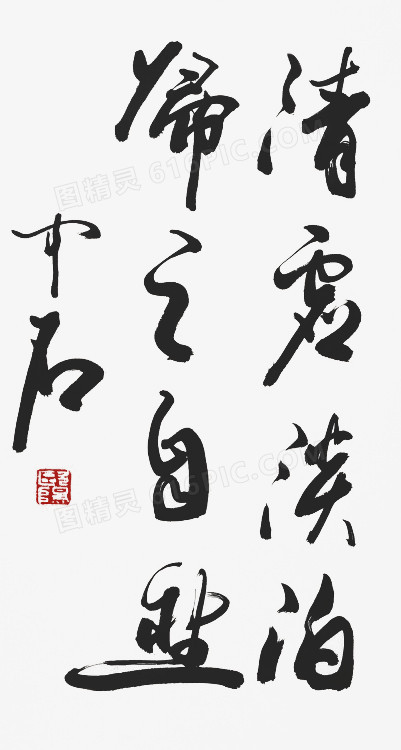 清虚淡泊
归之自然
中石
图精灵 616PIC.COM
图精灵 616PIC.COM